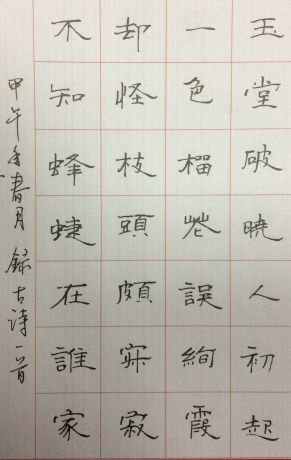 玉堂破曉人初起
一色榴花誤絢霞
却怪枝頭頗寂寂
不知蜂蜨在誰家
甲午年春月錄古詩一首